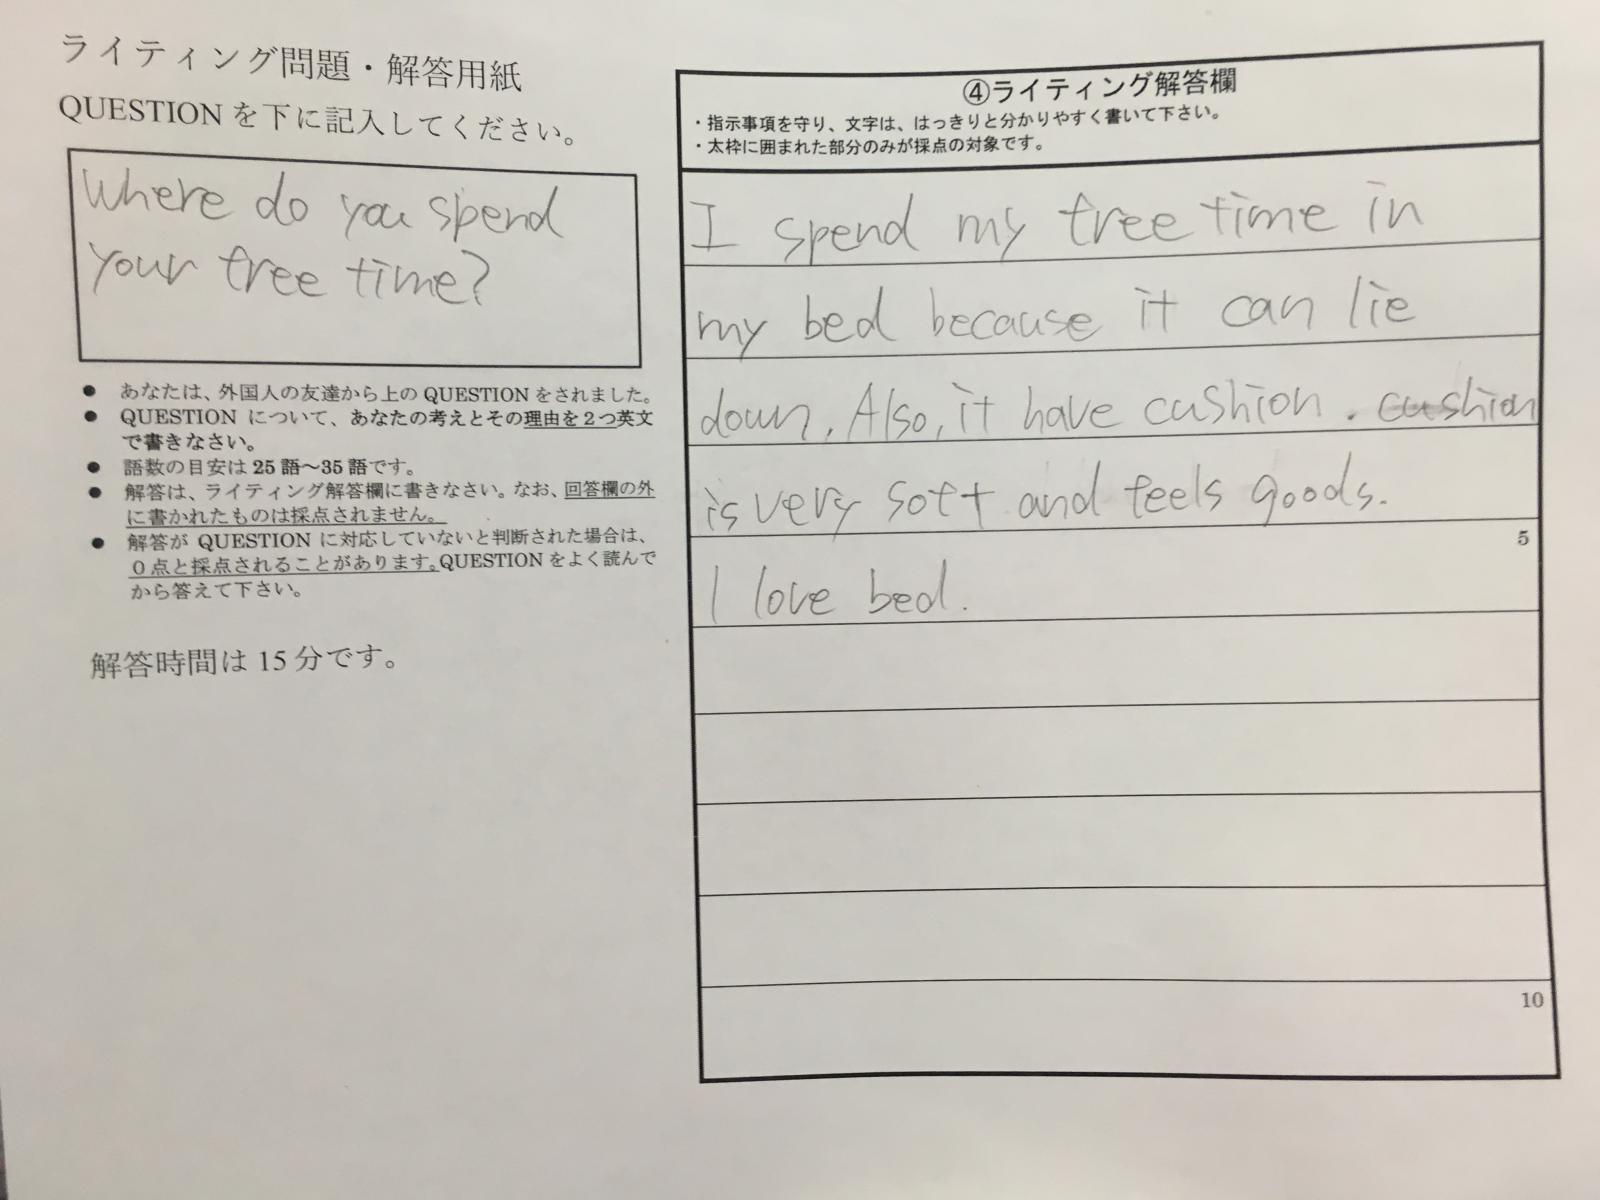 ライティング問題・解答用紙
QUESTIONを下に記入してください。
Where do you spend
your free time?
● あなたは、外国人の友達から上のQUESTIONをされました。
● QUESTION について、あなたの考えとその理由を2つ英文
で書きなさい。
● 語数の目安は25語～35語です。
● 解答は、ライティング解答欄に書きなさい。なお、回答欄の外
に書かれたものは採点されません。
● 解答が QUESTION に対応していないと判断された場合は、
0点と採点されることがあります。QUESTIONをよく読んで
から答えて下さい。
解答時間は15分です。
④ライティング解答欄
・指示事項を守り、文字は、はっきりと分かりやすく書いて下さい。
・太枠に囲まれた部分のみが採点の対象です。
I spend my free time in
my bed because it can lie
down. Also, it have cushion. cushion
is very soft and feels goods.
5
I love bed.
10